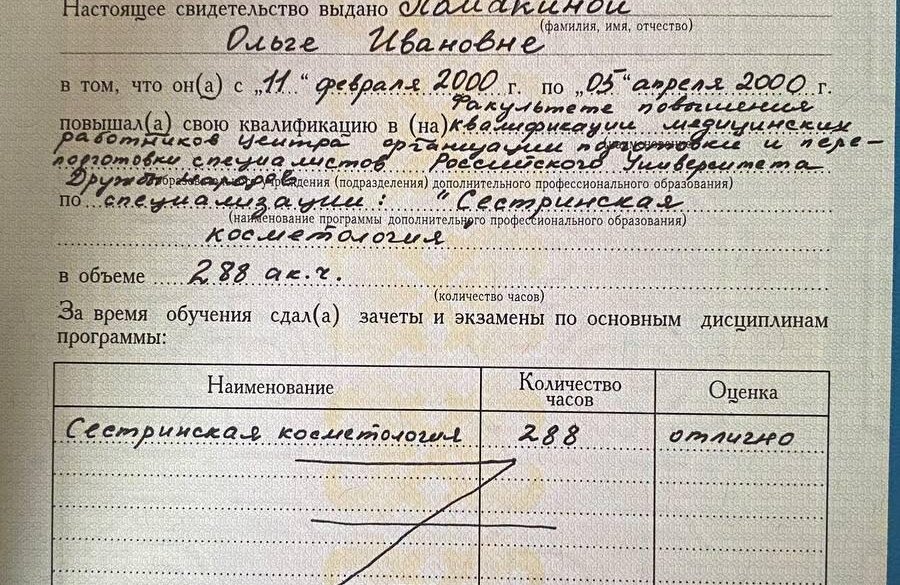 Настоящее свидетельство выдано Ламакиной
(фамилия, имя, отчество)
Ольге Ивановне
в том, что он(а) с „11“ февраля 2000 г. по „05“ апреля 2000 г.
Факультете повышения
повышал(а) свою квалификацию в (на) квалификации медицинских
работников Центра организации подготовки и пере-
подготовки специалистов Российского Университета
Дружбы народов
(подразделения) дополнительного профессионального образования)
по специализации: "Сестринская
(наименование программы дополнительного профессионального образования)
косметология"
в объеме 288 ак.ч.
(количество часов)
За время обучения сдал(а) зачеты и экзамены по основным дисциплинам
программы:
Наименование Количество часов Оценка
Сестринская косметология 288 отлично